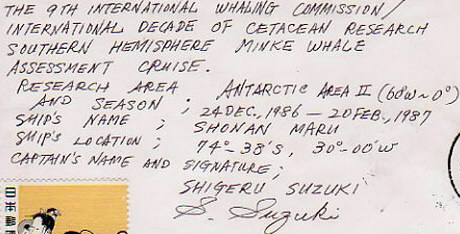 THE 9TH INTERNATIONAL WHALING COMMISSION/
INTERNATIONAL DECADE OF CETACEAN RESEARCH
SOUTHERN HEMISPHERE MINKE WHALE
ASSESSMENT CRUISE.
RESEARCH AREA ANTARCTIC AREA II (60°W~0°)
AND SEASON ; 24 DEC., 1986 — 20 FEB., 1987
SHIP'S NAME ; SHONAN MARU
SHIP'S LOCATION ; 74°-38'S, 30°-00'W
CAPTAIN'S NAME AND SIGNATURE ;
SHIGERU SUZUKI
S. Suzuki
日本郵便